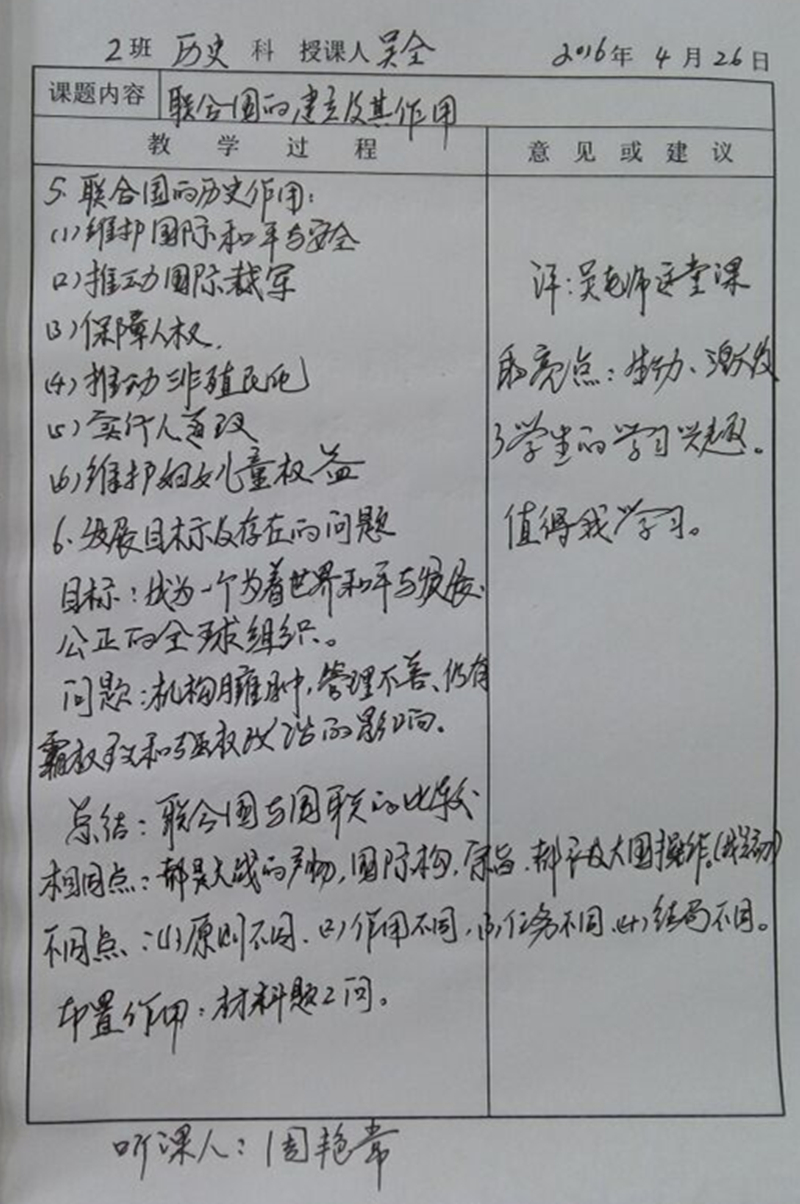 2班 历史 科 授课人 吴全 2016年 4月26日
课题内容 联合国的建立及其作用
教学过程 意见或建议
5. 联合国的历史作用:
(1)维护国际和平与安全
(2)推动国际裁军
(3)保障人权.
(4)推动非殖民化
(5)实行人道
(6)维护妇女儿童权益
6. 发展目标及存在的问题
目标:成为一个为着世界和平与发展、
公正的全球组织。
问题:机构臃肿,管理不善、仍有
霸权主义和强权政治的影响.
总结:联合国与国联的比较
相同点:都是大战的产物,国际构,宗旨.都 大国操作。
不同点:(1)原则不同.(2)作用不同,(3)任务不同.(4)结局不同。
布置作用:材料题2问。
评:吴老师这堂课
的亮点:生动、激发
了学生的学习兴趣。
值得我学习。
听课人:周艳常